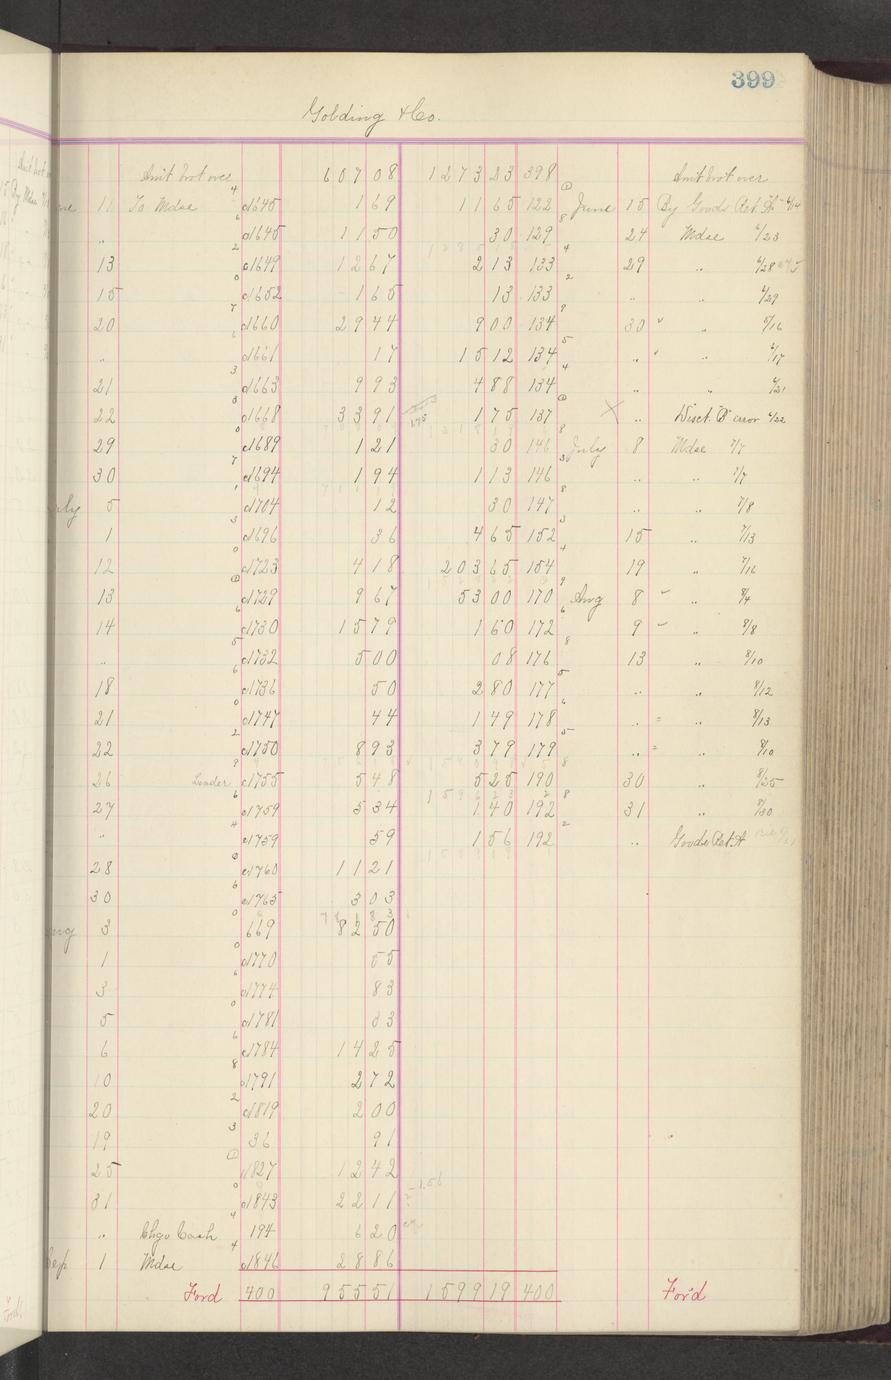 399
Golding & Co.
Amt brot over 607 08 1273 23 398 Amt brot over
11 To Mdse 1645 1 69 11 65 122 June 15 By Goods Ret
" 1645 11 50 30 129 24 Mdse 6/23
13 1649 12 67 2 13 133 29 " 6/28
15 1652 1 65 13 133 " " 6/29
20 1660 29 44 9 00 134 30 " " 5/16
" 1661 17 15 12 134 " " 6/17
21 1663 9 93 4 88 134 " " 6/21
22 1668 33 91 1.75 1 75 137 X " Disct. error 6/22
29 1689 1 21 30 146 July 8 Mdse 7/7
30 1694 1 94 1 13 146 " " 7/7
July 5 1704 12 30 147 " " 7/8
1 1696 36 4 65 152 15 " 7/13
12 1723 4 18 203 65 154 19 " 7/16
13 1729 9 67 53 00 170 Aug 8 " 8/4
14 1730 15 79 1 60 172 9 " 8/8
" 1732 5 00 08 176 13 " 8/10
18 1736 50 2 80 177 " " 8/12
21 1747 44 1 49 178 " " 8/13
22 1750 8 93 3 79 179 " " 8/10
26 1755 5 48 5 25 190 30 " 8/25
27 1759 5 34 1 40 192 31 " 8/30
" 1759 59 1 56 192 " Goods Ret
28 1760 11 21
30 1765 3 03
Aug 3 669 82 50
1 1770 55
3 1774 83
5 1781 33
6 1784 14 25
10 1791 2 72
20 1819 2 00
19 36 91
25 1827 12 42
31 1843 22 11
" Chgo Cash 194 6 20
Sep 1 Mdse 1846 28 86
Ford 400 955 51 1599 19 400 Ford